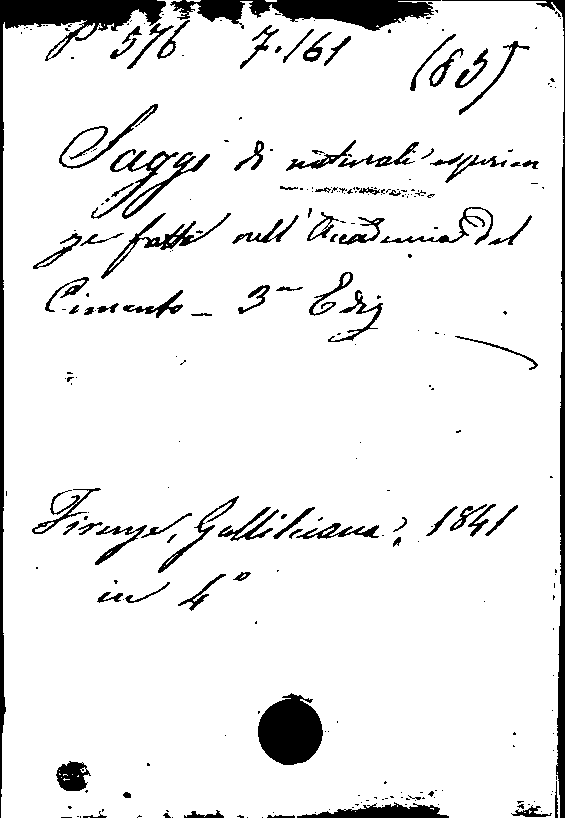 P 576 7.161 (83)
Saggi di naturali esperien
ze fatte nell'Accademia del
Cimento - 3ª Ediz
Firenze, Gallileiana, 1841
in 4°